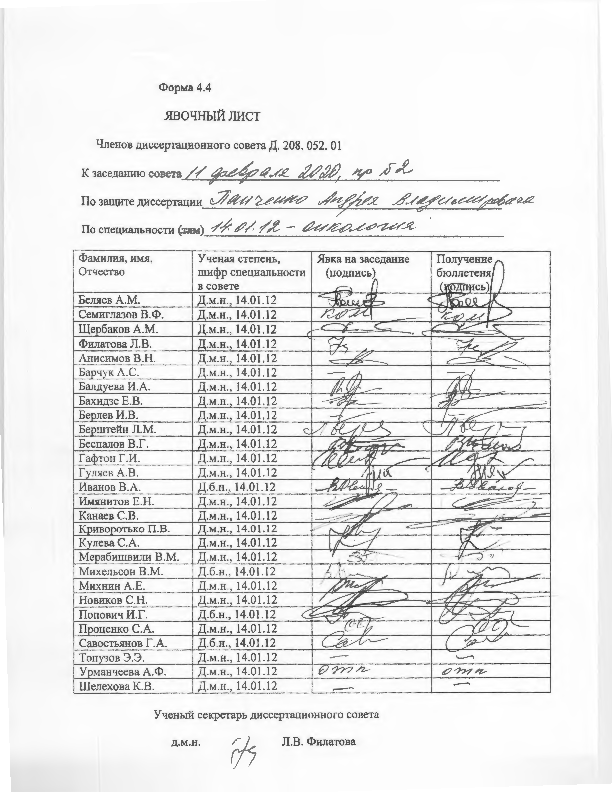 Форма 4.4
ЯВОЧНЫЙ ЛИСТ
Членов диссертационного совета Д. 208. 052. 01
К заседанию совета 11 февраля 2020, пр 52
По защите диссертации Панченко Андрея Владимировича
По специальности (ям) 14.01.12 – онкология
Фамилия, имя, Отчество
Ученая степень, шифр специальности в совете
Явка на заседание (подпись)
Получение бюллетеня (подпись)
Беляев А.М. Д.м.н., 14.01.12
Семиглазов В.Ф. Д.м.н., 14.01.12 ком ком
Щербаков А.М. Д.м.н., 14.01.12
Филатова Л.В. Д.м.н., 14.01.12
Анисимов В.Н. Д.м.н., 14.01.12
Барчук А.С. Д.м.н., 14.01.12 — —
Балдуева И.А. Д.м.н., 14.01.12
Бахидзе Е.В. Д.м.н., 14.01.12
Берлев И.В. Д.м.н., 14.01.12 — —
Берштейн Л.М. Д.м.н., 14.01.12
Беспалов В.Г. Д.м.н., 14.01.12
Гафтон Г.И. Д.м.н., 14.01.12
Гуляев А.В. Д.м.н., 14.01.12
Иванов В.А. Д.б.н., 14.01.12
Имянитов Е.Н. Д.м.н., 14.01.12
Канаев С.В. Д.м.н., 14.01.12
Криворотько П.В. Д.м.н., 14.01.12
Кулева С.А. Д.м.н., 14.01.12
Мерабишвили В.М. Д.м.н., 14.01.12
Михельсон В.М. Д.б.н., 14.01.12
Михнин А.Е. Д.м.н., 14.01.12
Новиков С.Н. Д.м.н., 14.01.12
Попович И.Г. Д.б.н., 14.01.12
Проценко С.А. Д.м.н., 14.01.12
Савостьянов Г.А. Д.б.н., 14.01.12
Топузов Э.Э. Д.м.н., 14.01.12 — —
Урманчеева А.Ф. Д.м.н., 14.01.12 отп отп
Шелехова К.В. Д.м.н., 14.01.12 — —
Ученый секретарь диссертационного совета
д.м.н. Л.В. Филатова